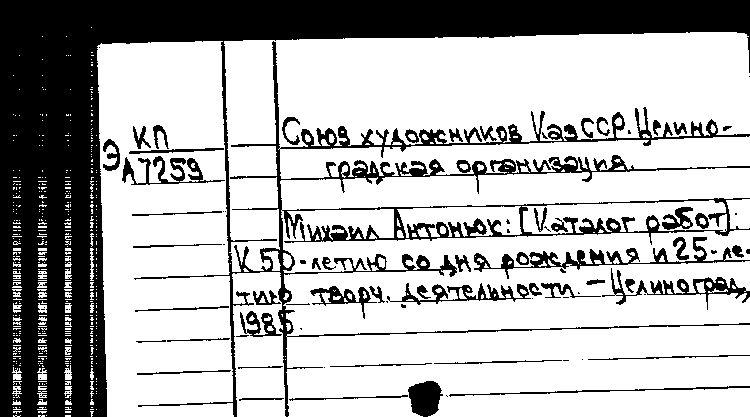 КП
Э А7259
Союз художников КазССР. Целино-
градская организация.
Михаил Антонюк: [Каталог работ]:
К 50-летию со дня рождения и 25-ле-
тию творч. деятельности. – Целиноград,
1985.